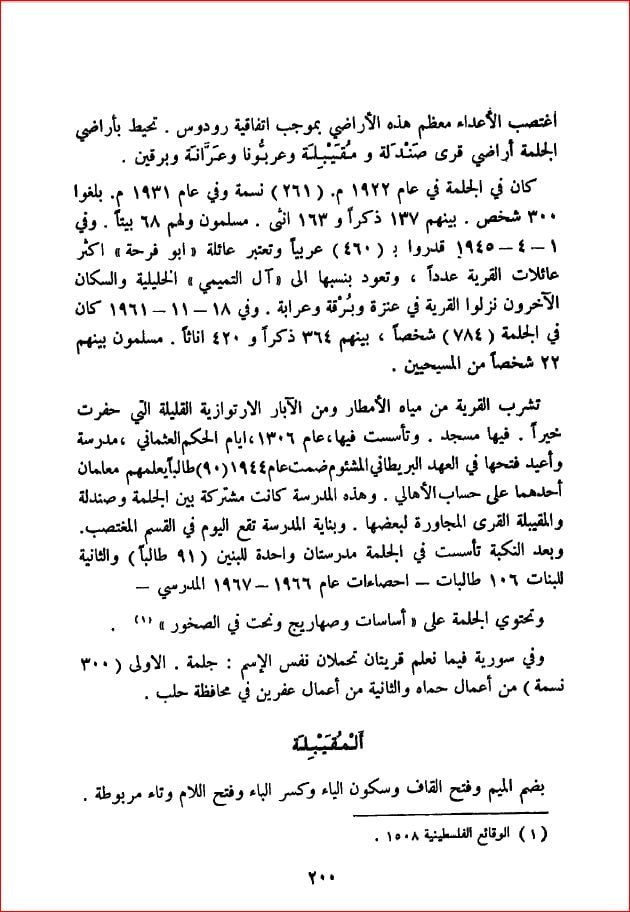 اغتصب الأعداء معظم هذه الأراضي بموجب اتفاقية رودوس . تحيط بأراضي
الجلمة أراضي قرى صَنْدَلة و مُقَيْبِلة وعربُّونا وعَرَّانَة وبرقين .
كان في الجلمة في عام ١٩٢٢ م. (٢٦١) نسمة وفي عام ١٩٣١ م. بلغوا
٣٠٠ شخص . بينهم ١٣٧ ذكراً و ١٦٣ انثى . مسلمون ولهم ٦٨ بيتاً . وفي
١ – ٤ – ١٩٤٥ قدروا بـ (٤٦٠) عربياً وتعتبر عائلة « ابو فرحة » اكثر
عائلات القرية عدداً ، وتعود بنسبها الى « آل التميمي » الخليلية والسكان
الآخرون نزلوا القرية في عنزة وبُرْقة وعرابة . وفي ١٨ – ١١ – ١٩٦١ كان
في الجلمة (٧٨٤) شخصاً ، بينهم ٣٦٤ ذكراً و ٤٢٠ اناثاً . مسلمون بينهم
٢٢ شخصاً من المسيحيين .
تشرب القرية من مياه الأمطار ومن الآبار الارتوازية القليلة التي حفرت
خيراً . فيها مسجد . وتأسست فيها،عام ١٣٠٦،ايام الحكم العثماني ،مدرسة
وأعيد فتحها في العهد البريطاني المشئوم ضمت عام ١٩٤٤(٩٠)طالباً يعلمهم معلمان
أحدهما على حساب الأهالي . وهذه المدرسة كانت مشتركة بين الجلمة وصندلة
والمقيبلة القرى المجاورة لبعضها . وبناية المدرسة تقع اليوم في القسم المغتصب.
وبعد النكبة تأسست في الجلمة مدرستان واحدة للبنين (٩١ طالباً) والثانية
للبنات ١٠٦ طالبات – احصاءات عام ١٩٦٦ – ١٩٦٧ المدرسي –
وتحتوي الجلمة على « أساسات وصهاريج ونحت في الصخور » (١) .
وفي سورية فيما نعلم قريتان تحملان نفس الإسم : جلمة . الاولى ( ٣٠٠
نسمة ) من أعمال حماه والثانية من أعمال عفرين في محافظة حلب .
اَلْمُقَيْبِلَة
بضم الميم وفتح القاف وسكون الياء وكسر الباء وفتح اللام وتاء مربوطة .
(١) الوقائع الفلسطينية ١٥٠٨ .
٢٠٠